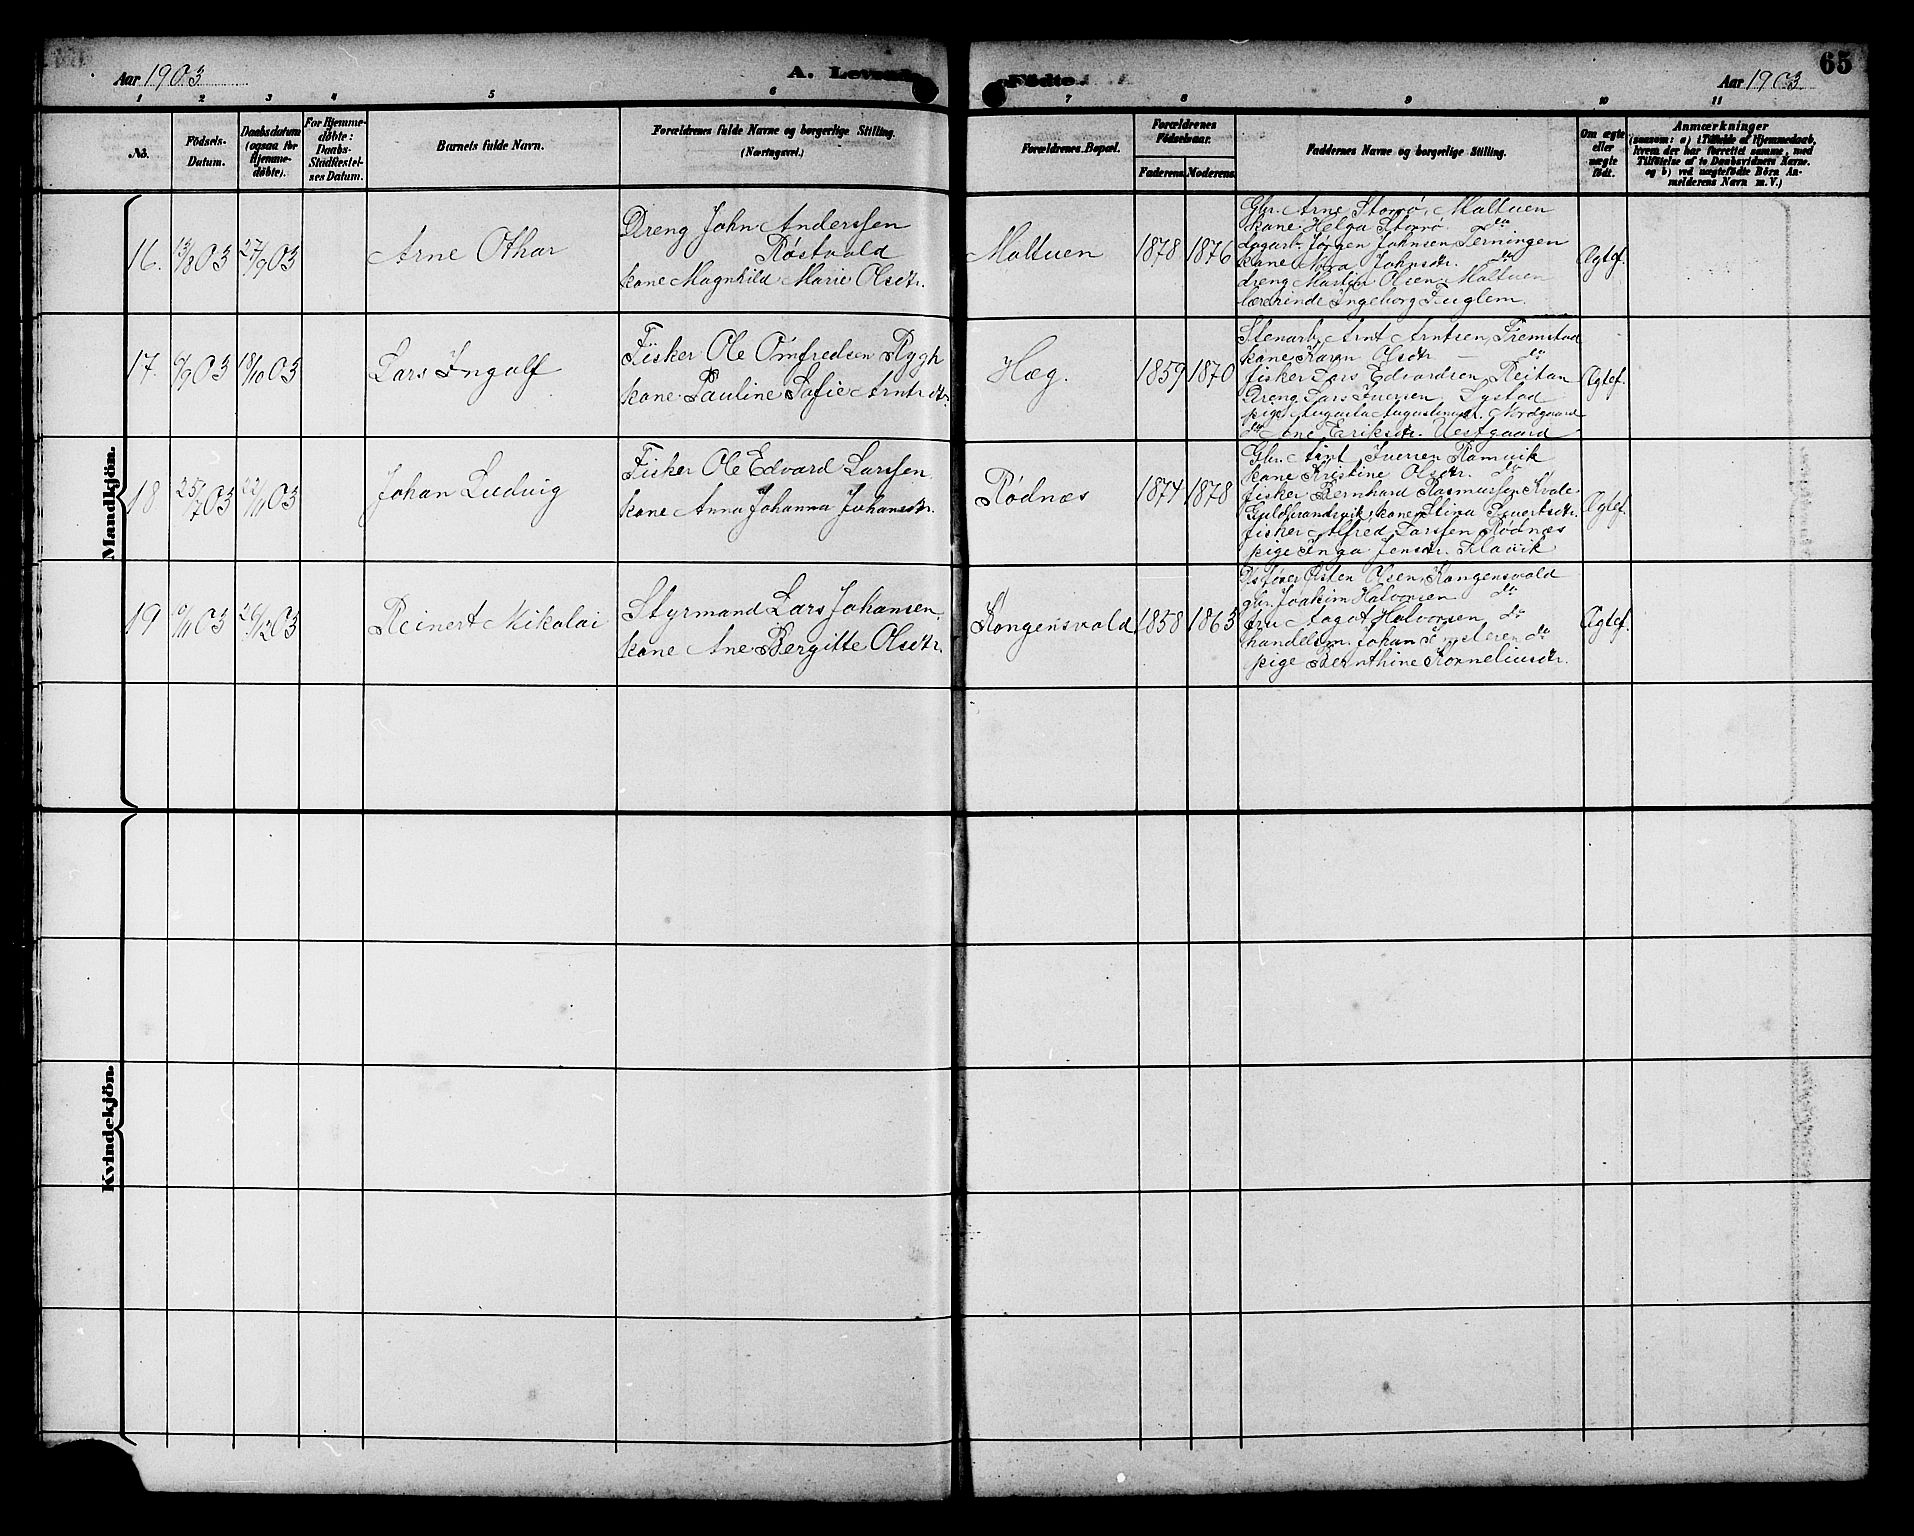 Aar 1903
A. Levende
Födte.
65
Aar 1903
1 2 3 4 5 6 7 8 9 10 11
No.
Födsels-Datum.
Daabsdatum (ogsaa for Hjemmedöbte).
For Hjemmedöbte: Daabs-Stadfestelses Datum.
Barnets fulde Navn.
Forældrenes fulde Navne og borgerlige Stilling. (Næringsvei.)
Forældrenes Bopæl.
Forældrenes Födselsaar.
Faderens. Moderens.
Faddernes Navne og borgerlige Stilling.
Om ægte eller uægte födt.
Anmærkninger
(saasom: a) i Tilfælde af Hjemmedaab, hvem der har forrettet samme, med Tilföielse af to Daabsvidners Navne. og b) ved uægtefödte Börn Anmelderens Navn m. V.)
Mandkjön.
16. 13/8 03 27/9 03
Arne Othar
Dreng John Anderssen
Røstvold
kone Magnhild Marie Olsdtr.
Maltuen
1878 1876
Gbr. Arne Storrø, Maltuen
kone Helga Storrø do
dagarb. Jørgen Johnsen Terningen
kone Johnsdtr. do
dreng Martin Olsen Maltuen
lærerinde Ingeborg Fuglem.
Ægtef.
17. 6/9 03 18/10 03
Lars Ingolf
Fisker Ole Omfredsen Rygh
kone Pauline Sofie Arntsdtr.
Hæg.
1859 1870
Stenarb. Arnt Arntsen, Fremstad
kone Karen Olsdtr — do
fisker Lars Edvardsen Reitan
Dreng Lars Iversen Lystad
pige Augusta Augustinusdtr. Nordgaard
do Ane Eriksdtr. Vestgaard
Ægtef.
18 25/7 03 22/11 03
Johan Ludvig
Fisker Ole Edvard Larssen
kone Anna Johanna Johansdtr.
Rødnæs
1874 1878
Gbr. Arnt Iversen Ramvik
kone Kristine Olsdtr. do
fisker Bernhard Rasmussen Kvale
Guldbrandsvik, kone Stina Sivertsdtr.
fisker Alfred Larssen Rødnæs
pige Inga Jensdtr. Klavik
Ægtef.
19 9/11 03 26/12 03
Reinert Mikolai
Styrmand Lars Johansen,
kone Ane Bergitte Olsdtr.
Kongensvold
1858 1863
Østen Olsen, Kongensvold
gbr. Joakim Halvorsen do
fru Aagot Halvorsen do
handelsm. Johan do
pige Bernthine Korneliusdtr.
Ægtef.
Kvindekjön.